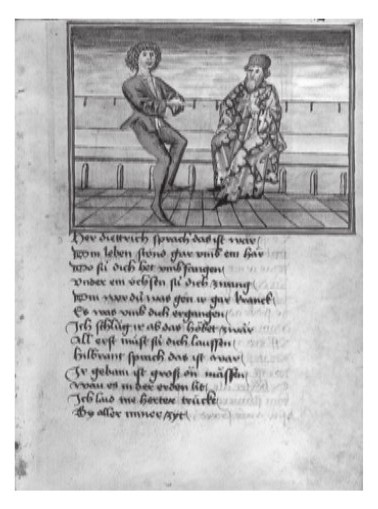 Her diettrich sprach das ist war
Din leben stönd gar vmb em här
Do sú dich het vmbfangen
Vnder em vchsen sú dich zwang
Din wer dú was gön ir gar kranck
Es was vmb dich ergangen
Ich schlůg ir ab das höbet zwar
All erst můst sú dich laussen
hilbrant sprach das ist war
Ir gebain ist groß on mässen
wan es in der erden lit
Ich laid nie herter trucke
By aller miner zyt